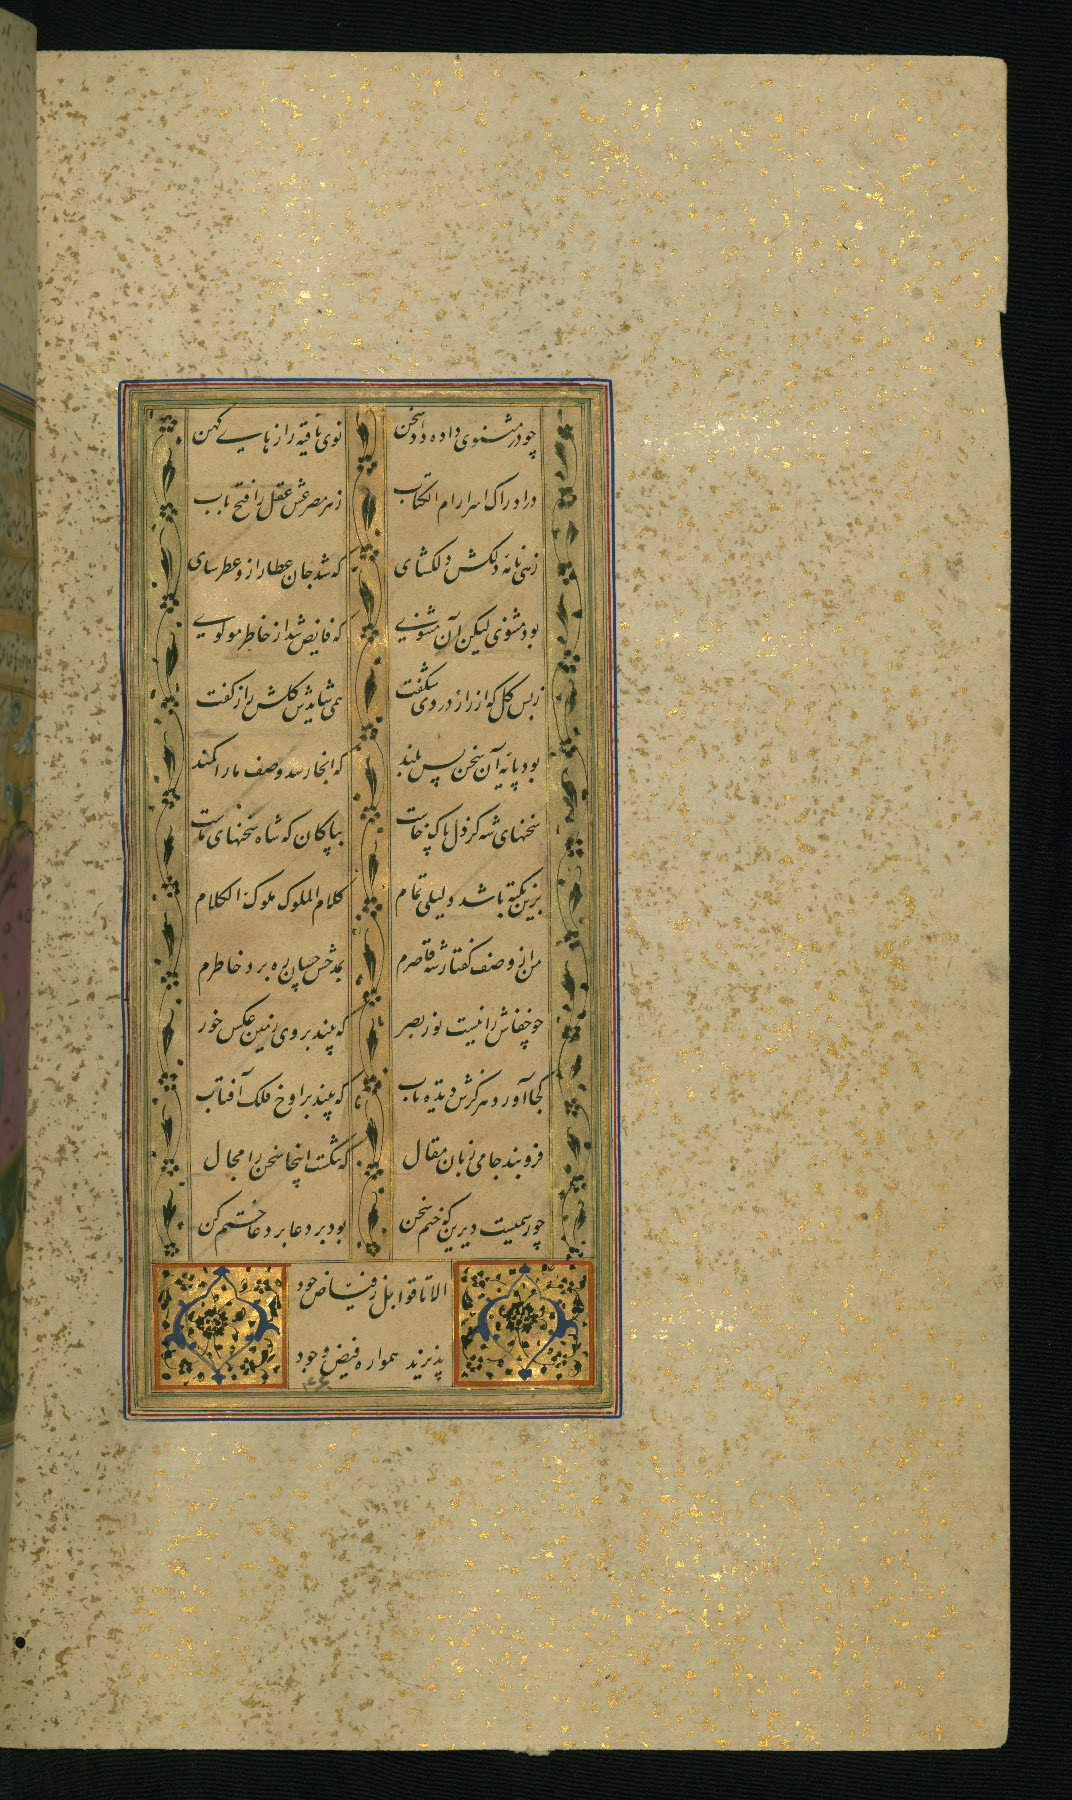 چو در مثنوی داده داد سخن نوی یافته رازهای کهن
در ادراک اسرار ام الکتاب ز هر مصرعش عقل را فتح باب
زهی نامهٔ دلکش دلگشای که شد جان عطار ازو عطرسای
بود مثنوی لیکن آن مثنوی که فایض شد از خاطر مولوی
ز بس گل که از راز در وی شگفت همی شایدش گلشن راز گفت
بود پایهٔ آن سخن بس بلند که آنجا رسد وصف ما را کمند
سخنهای شه کز دل پاک خاست بپاکان که شاه سخنهای ماست
برین نکته باشد دلیلی تمام کلام الملوک ملوک الکلام
من از وصف گفتار شه قاصرم بمدحش چسان ره برد خاطرم
چو خفاش را نیست نور بصر که بیند بروی زمین عکس خور
کجا آورد هرگزش دیده تاب که بیند بر اوج فلک آفتاب
فروبند جامی زبان مقال که تنگست اینجا سخن را مجال
چو رسمیست دیرین که ختم سخن بود بر دعا بر دعا ختم کن
الا تا قوابل ز فیاض جود
پذیرند همواره فیض وجود